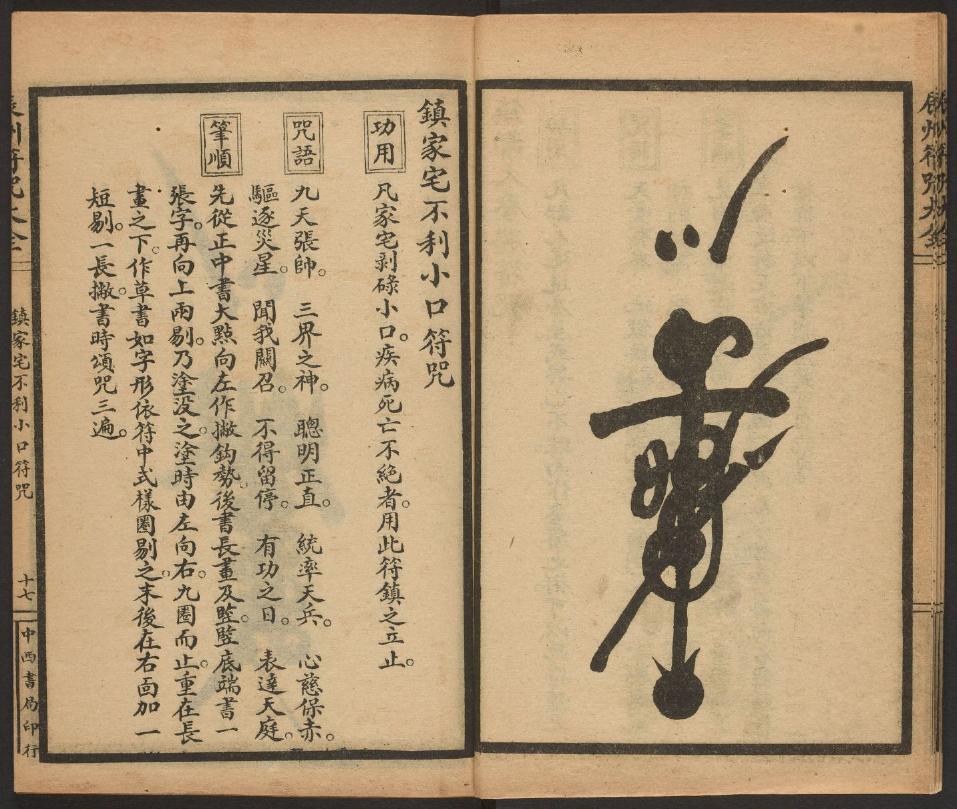 鎮家宅不利小口符咒
功用
凡家宅剥碌小口。疾病死亡不絶者。用此符鎮之立止。
咒語
九天張帥。三界之神。聰明正直。統率天兵。心慈保赤。
驅逐災星。聞我關召。不得留停。有功之日。表達天庭。
筆順
先從正中書大點向左作撇鈎勢。後書長畫及。竪竪底端書一
張字。再向上兩剔。乃塗没之。塗時由左向右。九圈而止。重在長
畫之下。作草書如字形依符中式樣圈剔之。末後在右面加一
短剔。一長撇。書時頌咒三遍。
鎮家宅不利小口符咒
十七
中西書局印行